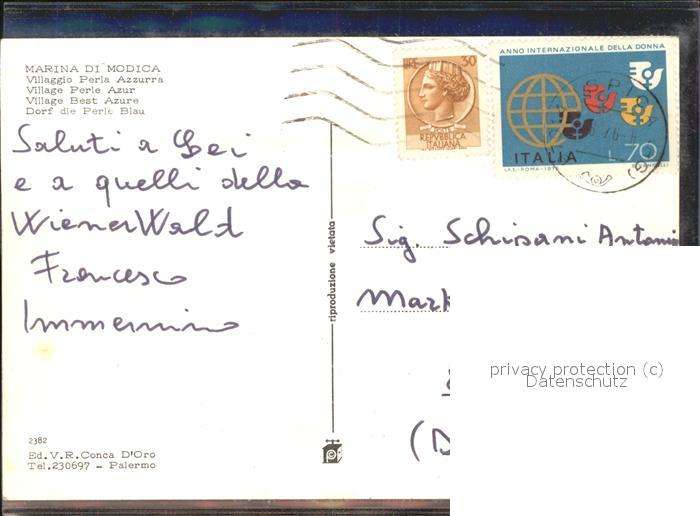 MARINA DI MODICA
Villaggio Perla Azzurra
Village Perle Azur
Village Best Azure
Dorf die Perle Blau
Saluti a Lei
e a quelli della
WienerWald
Francesco
2382
Ed. V.R. Conca D'Oro
Tel. 230697 - Palermo
riproduzione vietata
LIRE 30
REPVBBLICA
ITALIANA
ANNO INTERNAZIONALE DELLA DONNA
ITALIA L.70
Sig. Schisani Antonio
privacy protection (c)
Datenschutz
(D